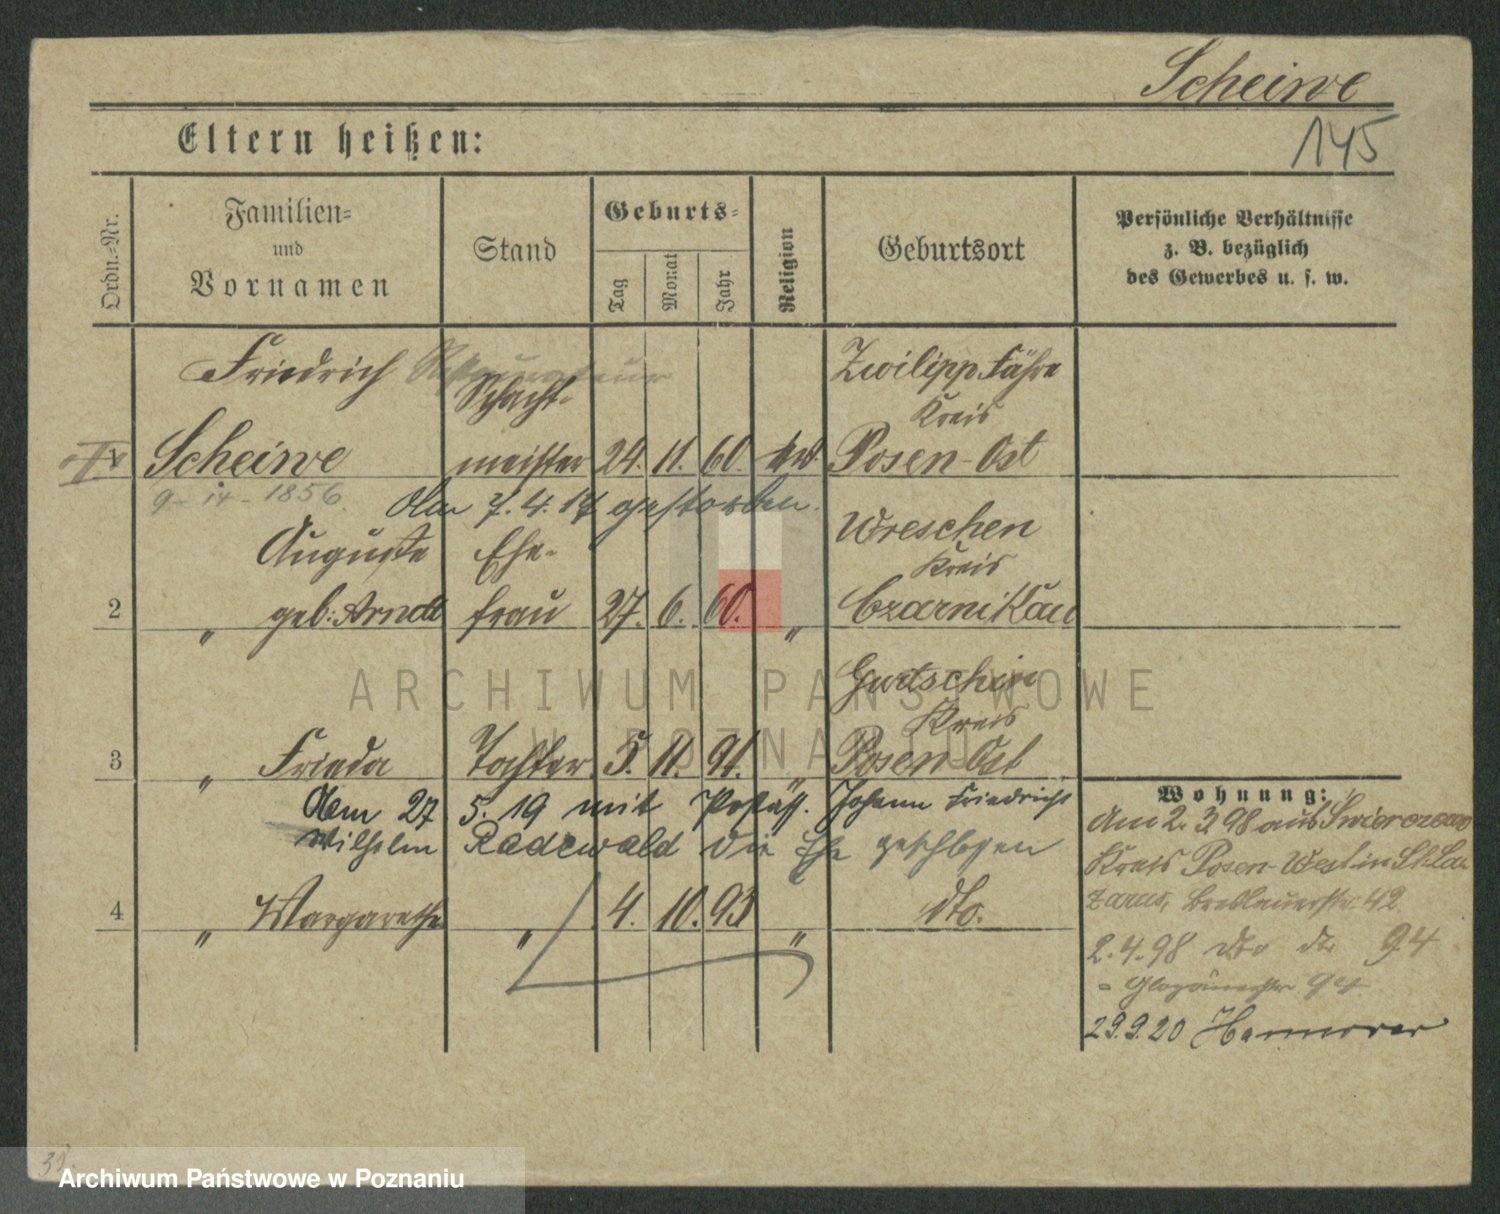 Scheiwe
145
Eltern heißen:
Ordn.-Nr.
Familien-
und
Vornamen
Stand
Geburts-
Tag
Monat
Jahr
Religion
Geburtsort
Persönliche Verhältnisse
z. B. bezüglich
des Gewerbes u. s. w.
Friedrich
Schacht-
Zwilipp. Fähre
Kreis
Scheiwe meister 24. 11. 60. Posen-Ost
9 - 14 - 1856.
Am 7. 4. 17 gestorben.
Auguste Ehe- Wreschen
Kreis
2 " geb: Arndt frau 27. 6. 60. " Czarnikau
Gurtschin
Kreis
3 " Frieda Tochter 5. 11. 91. " Posen-Ost
Am 27 5. 19 mit Johann Friedrich
Wilhelm Radewald die Ehe geschlossen
4 " Margarethe " 4. 10. 93 " dto.
Wohnung:
Am 2. 3. 98 aus
Kreis Posen-West in St. La-
zarus, Breslauerstr. 42
2. 4. 98 dto 94
94
29. 9. 20 Hannover
ARCHIWUM PAŃSTWOWE
W POZNANIU
Archiwum Państwowe w Poznaniu